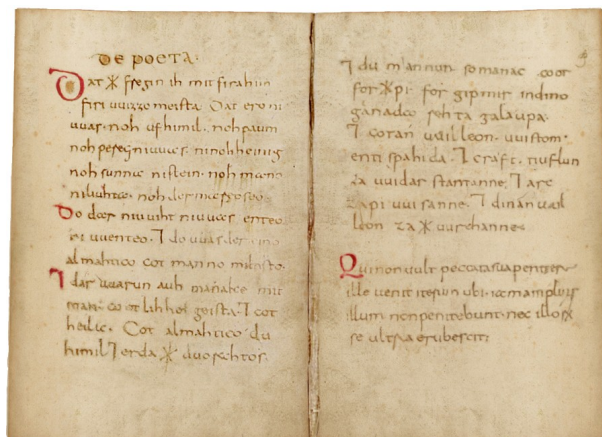 DE POETA·
Dat ᚼ fregin ih mit firahim
firi uuizzo meista· Dat ero ni
uuas· noh ufhimil· noh paum
noh pereg ni uuas· ni nohheinig
noh sunna ni stein· noh mano
ni liuhta· noh der mareo seo
Do dar niuuiht ni uuas enteo
ni uuenteo· ⁊ do uuas der eino
almahtico cot manno miltisto·
⁊ dar uuarun auh manake mit
inan· cootlihhe geista· ⁊ cot
heilac· Cot almahtico du
himil ⁊ erda ᚼ uuorahtos·
⁊ du mannun so manac coot
for ᚼ pi· for gipmir indino
ganada rehta galaupa·
⁊ cotan uuilleon· uuistom·
enti spahida· ⁊ craft· tiuflun
za uuidar stantanne· ⁊ arc
za pi uuisanne· ⁊ dinan uuil
leon za ᚼ uurchanne·
Qui non uult peccata sua penitere
ille uenit iterum ubi· iam amplius
illum non penitebunt· nec illorum
se ultra erubescit·